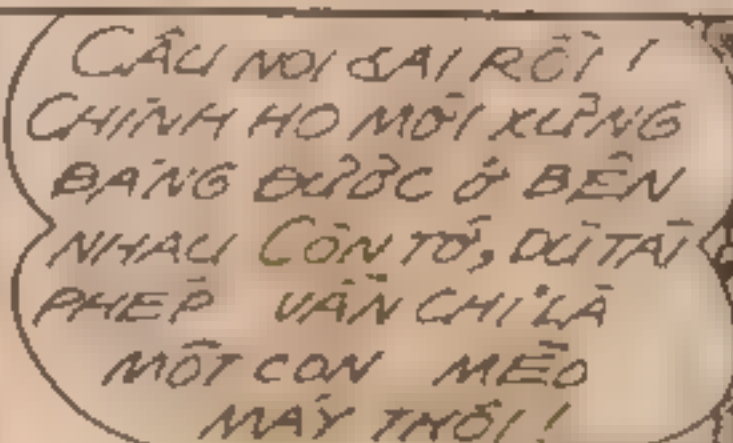 CẬU NÓI SAI RỒI !
CHÍNH HỌ MỚI XỨNG
ĐÁNG ĐƯỢC Ở BÊN
NHAU CÒN TỚ, DÙ TÀI
PHÉP VẪN CHỈ LÀ
MỘT CON MÈO
MÁY THÔI !